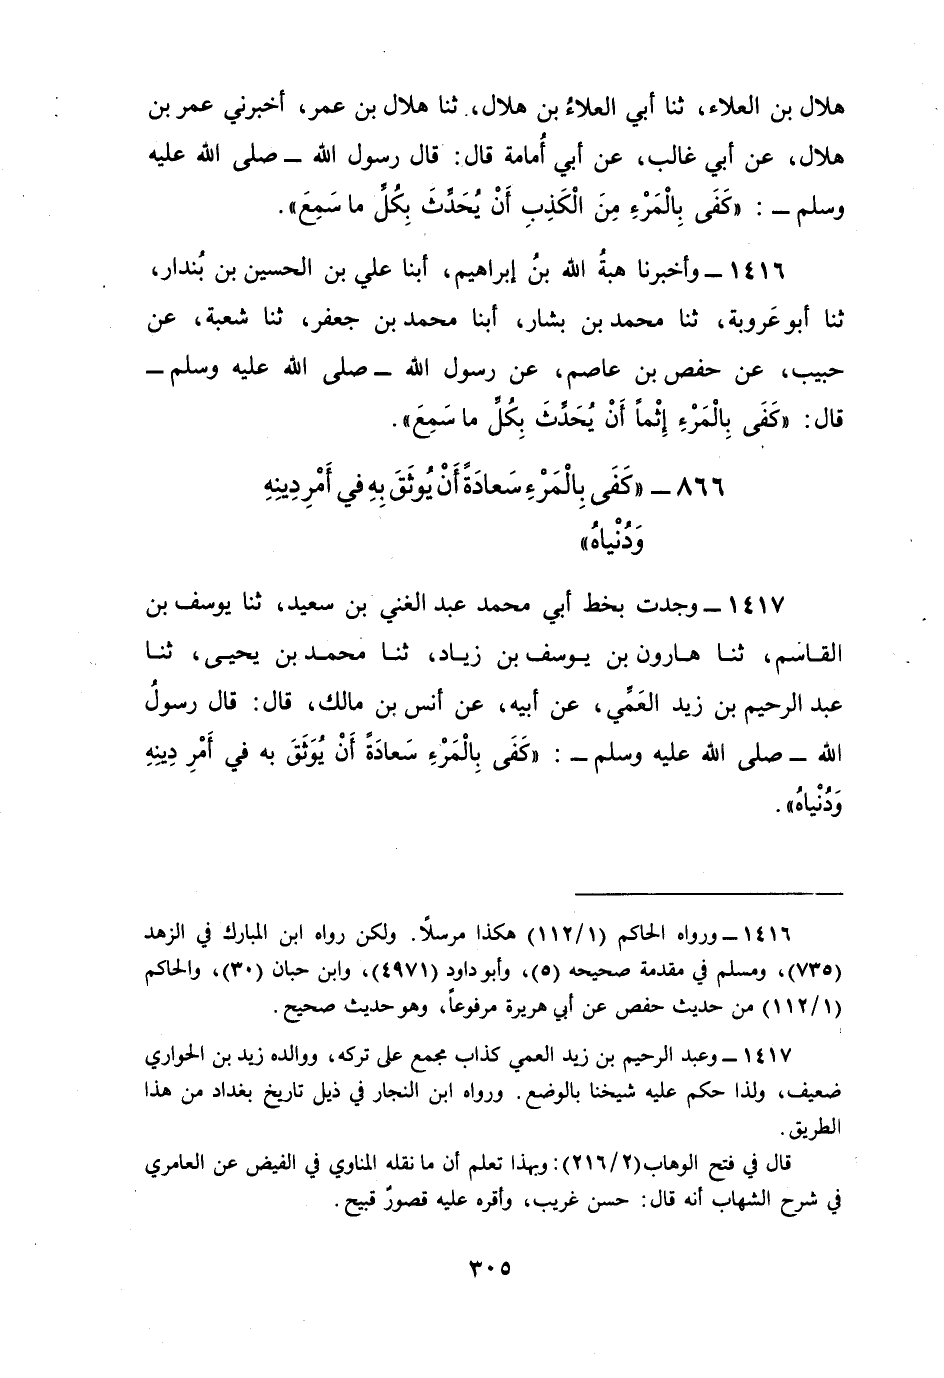 هلال بن العلاء، ثنا أبي العلاءُ بن هلال، ثنا هلال بن عمر، أخبرني عمر بن
هلال، عن أبي غالب، عن أبي أُمامة قال: قال رسول الله ــ صلى الله عليه
وسلم ــ : «كَفَى بِالْمَرْءِ مِنَ الْكَذِبِ أَنْ يُحَدِّثَ بِكُلِّ ما سَمِعَ».
١٤١٦ ــ وأخبرنا هبةُ الله بنُ إبراهيم، أبنا علي بن الحسين بن بُندار،
ثنا أبو عَروبة، ثنا محمد بن بشار، أبنا محمد بن جعفر، ثنا شعبة، عن
حبيب، عن حفص بن عاصم، عن رسول الله ــ صلى الله عليه وسلم ــ
قال: «كَفَى بِالْمَرْءِ إِثْماً أَنْ يُحَدِّثَ بِكُلِّ ما سَمِعَ».
٨٦٦ ــ «كَفَى بِالْمَرْءِ سَعادَةً أَنْ يُوثَقَ بِهِ في أَمْرِ دِينِهِ
وَدُنْياهُ»
١٤١٧ ــ وجدت بخط أبي محمد عبد الغني بن سعيد، ثنا يوسف بن
القاسم، ثنا هارون بن يوسف بن زياد، ثنا محمد بن يحيى، ثنا
عبد الرحيم بن زيد العَمِّي، عن أبيه، عن أنس بن مالك، قال: قال رسولُ
الله ــ صلى الله عليه وسلم ــ : «كَفَى بِالْمَرْءِ سَعادَةً أَنْ يُوَثَقَ به في أَمْرِ دِينِهِ
وَدُنْياهُ».
١٤١٦ ــ ورواه الحاكم (١١٢/١) هكذا مرسلاً. ولكن رواه ابن المبارك في الزهد
(٧٣٥)، ومسلم في مقدمة صحيحه (٥)، وأبو داود (٤٩٧١)، وابن حبان (٣٠)، والحاكم
(١١٢/١) من حديث حفص عن أبي هريرة مرفوعاً، وهو حديث صحيح.
١٤١٧ ــ وعبد الرحيم بن زيد العمي كذاب مجمع على تركه، ووالده زيد بن الحواري
ضعيف، ولذا حكم عليه شيخنا بالوضع. ورواه ابن النجار في ذيل تاريخ بغداد من هذا
الطريق.
قال في فتح الوهاب (٢١٦/٢): وبهذا تعلم أن ما نقله المناوي في الفيض عن العامري
في شرح الشهاب أنه قال: حسن غريب، وأقره عليه قصورٌ قبيح.
٣٠٥